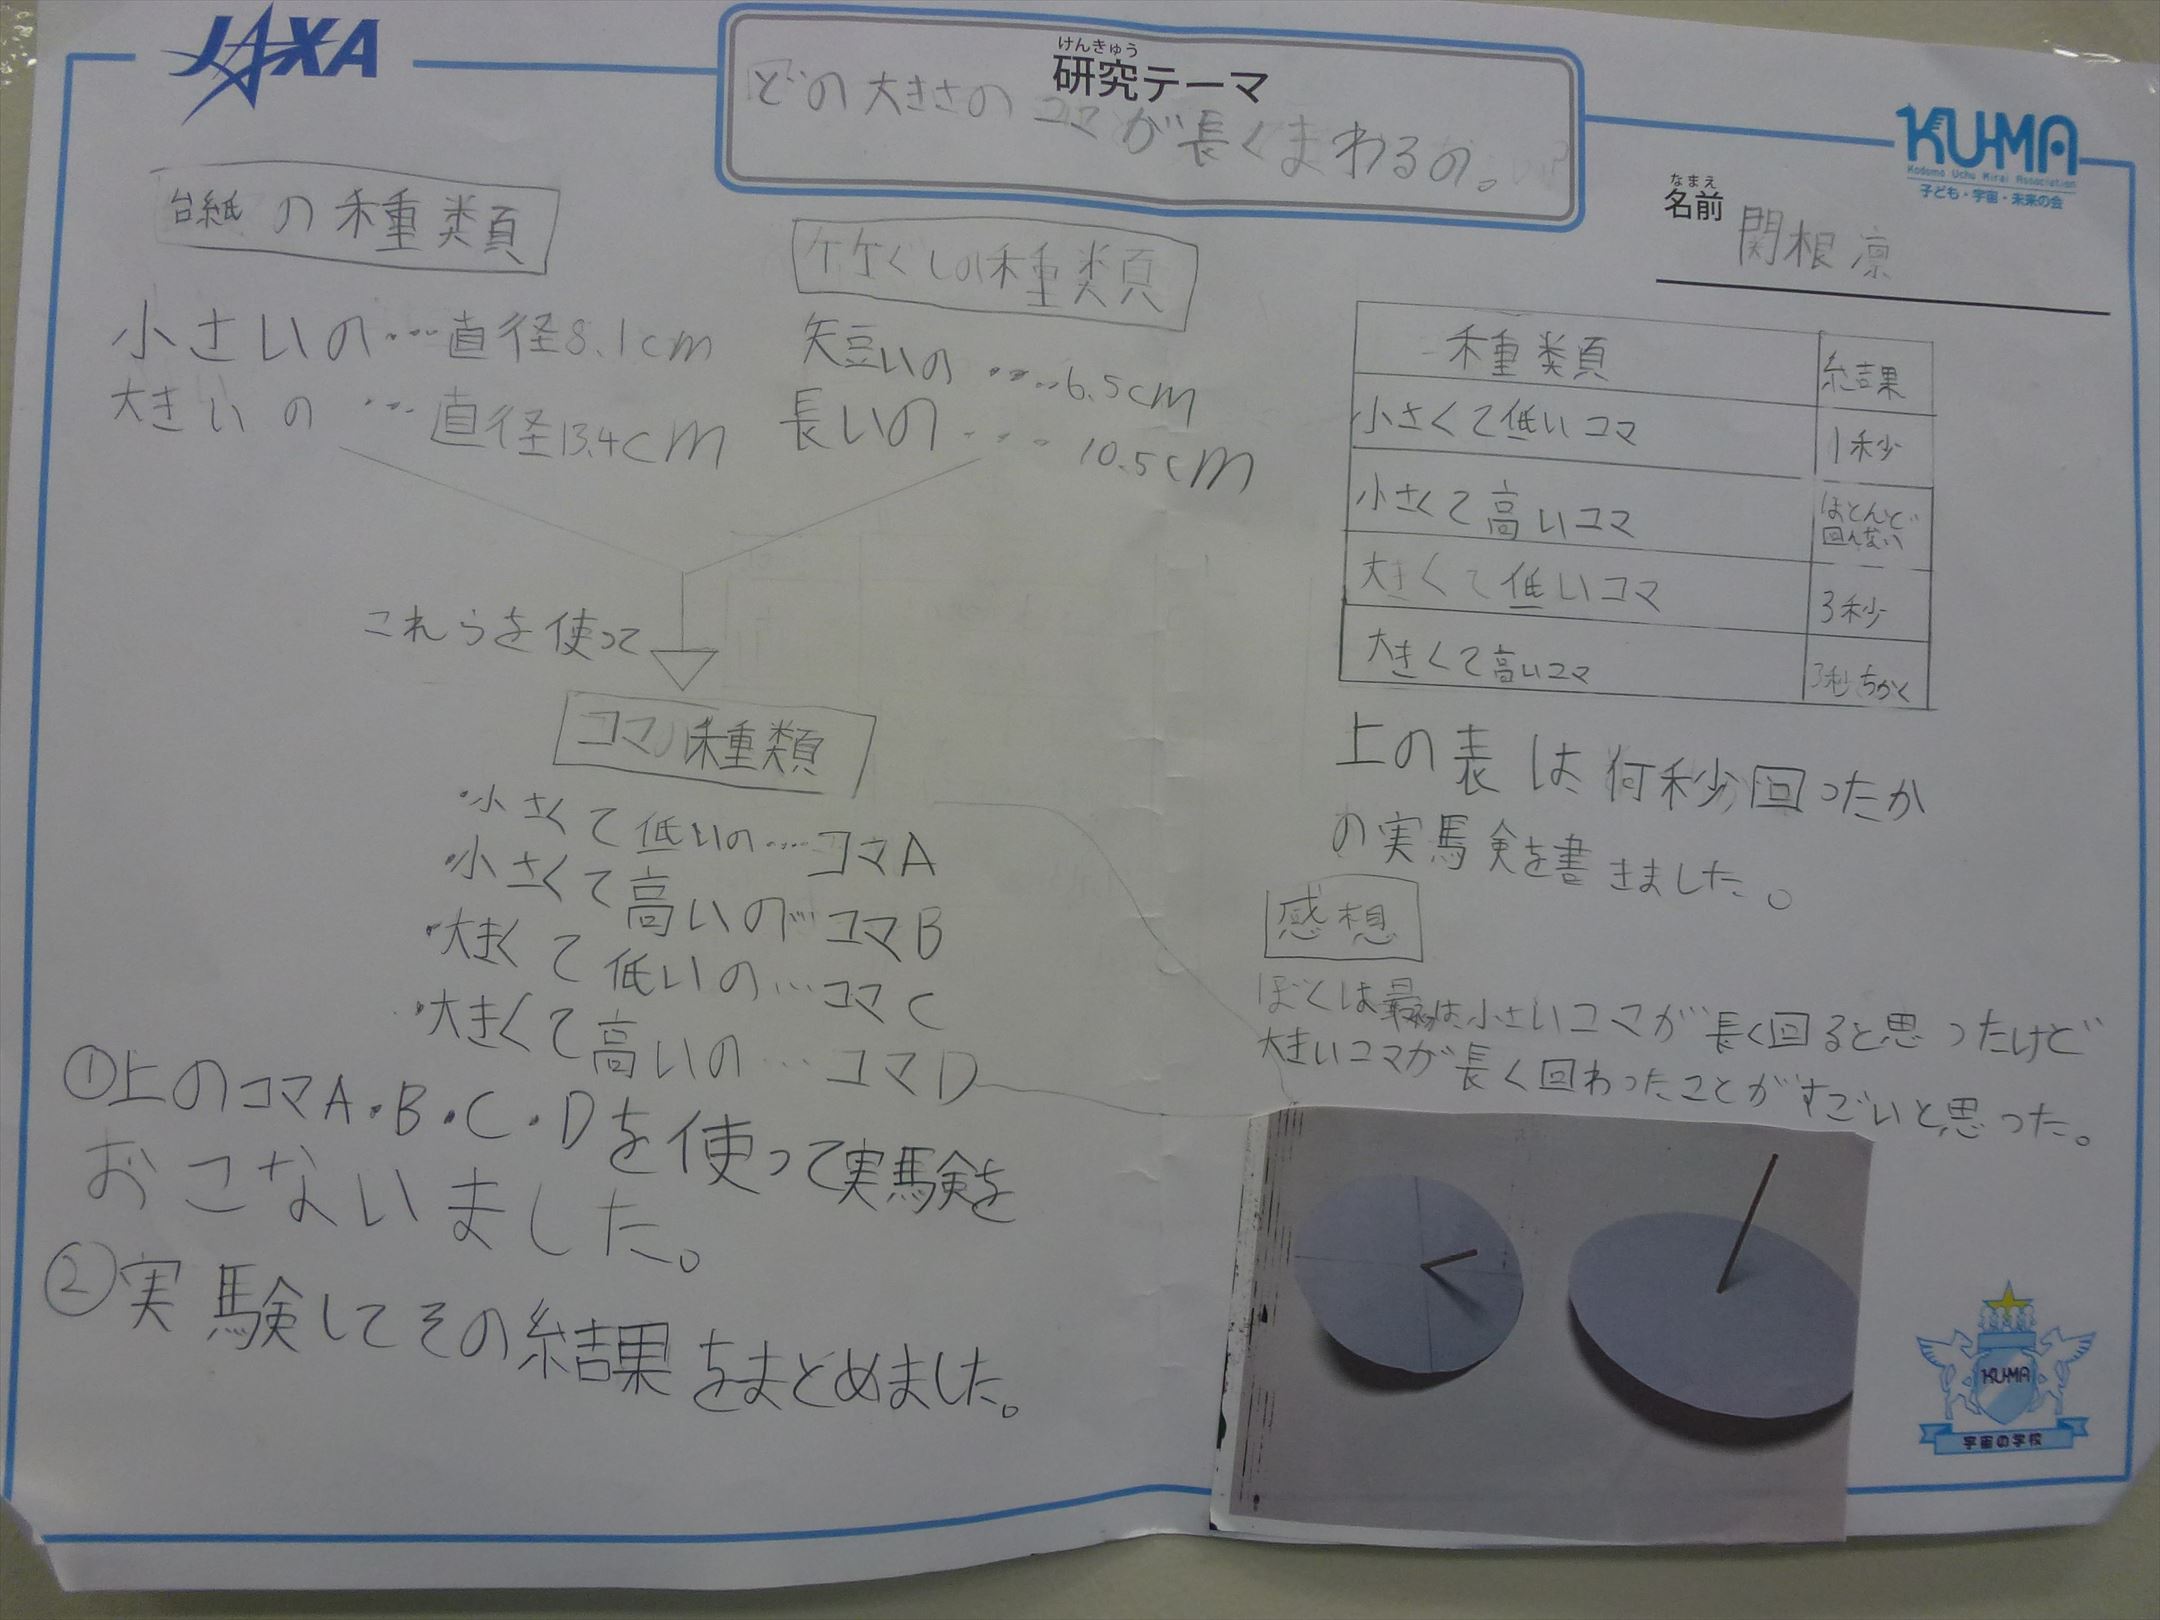 JAXA
けんきゅう
研究テーマ
どの大きさのコマが長くまわるの。
KU-MA
Kodomo Uchu Mirai Association
子ども・宇宙・未来の会
なまえ
名前 関根凛
台紙の種類
小さいの…直径8.1cm
大きいの…直径13.4cm
竹ぐしの種類
短いの....6.5cm
長いの....10.5cm
これらを使って
コマの種類
・小さくて低いの....コマA
・小さくて高いの…コマB
・大きくて低いの…コマC
・大きくて高いの…コマD
①上のコマA・B・C・Dを使って実験を
おこないました。
②実験してその結果をまとめました。
種類 結果
小さくて低いコマ 1秒
小さくて高いコマ ほとんど
回んない
大きくて低いコマ 3秒
大きくて高いコマ 3秒ちかく
上の表は何秒回ったか
の実験を書きました。
感想
ぼくは最初は、小さいコマが長く回ると思ったけど
大きいコマが長く回わったことがすごいと思った。
KU-MA
宇宙の学校